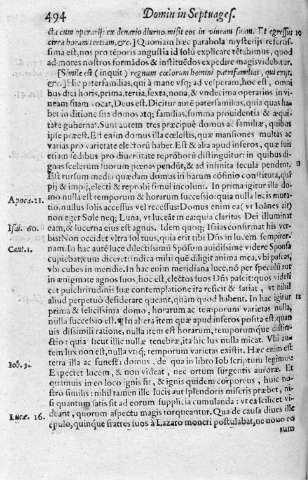 494 Domin in Septuages.
cta cum operarijs ex denario diurno misit eos in vineam suam. Et egressus
circa horam tertiam, &c.] Quoniam hæc parabola mysterijs refertis-
sima est, nec pro tēporis angustia id solū explicare tētabimus, quod
ad mores nostros formādos & instituēdos expedire magis videbitur.
[Simile est (inquit) regnum cœlorum homini patrifamilias, qui exijt,
&c.] Sic paterfamilias, qui à mane vsq; ad vesperam, hoc est, omni
bus diei horis, prima, tertia, sexta, nona, & vndecima operarios in vi-
neam suam vocat, Deus est. Dicitur autē paterfamilias, quia quas ha
bet in ditione sua domos atq; familias, summa prouidentia & æqui-
tate gubernat. Sunt autem tres præcipuè domos ac familiæ, quibus
ipse præest. Est enim domus illa cœlestis, quæ mansiones multas ac
varias pro varietate electorū habet. Est & alia apud inferos, quæ sua
etiam sedibus pro diuersitate reproborū distinguitur: in quibus di-
gnas scelerum suorum pœnas pendūt, & ad infinita secula pendent.
Est rursum media quædam domus in harum cōfinio constituta, qui
pij & impij, electi & reprobi simul incolunt. In prima igitur illa do-
mo nulla est temporum & horarum successio: quia nulla lucis muta-
tio: nullus solis accessus vel recessus. Domus enim ea (vt Ioānes ait)
Apoca. 21. non eget Sole neq; Luna, vt luceāt in ea: quia claritas Dei illuminat
Isai. 60. eam, & lucerna eius est agnus. Idem quoq; Isaias confirmat his ver-
bis: Non occidet vltra sol tuus, quia erit tibi Dn̄s in lucem sempiter-
nam. In hac autē luce dilectissimū Sponsum auidissimè videre Sponsa
Cant. 1. cupiebat, cum diceret: indica mihi quē diligit anima mea, vbi pascas,
vbi cubes in meridie. In hac enim meridiana luce, nō per speculū aut
in ænigmate agnos suos, hoc est, electos suos Dn̄s pascit: quos videli-
cet pulchritudinis suæ contemplatione ita reficit & satiat, vt nihil
aliud perpetuò desiderare queant, quàm quod habent. In hac igitur
prima & felicissima domo, horarum ac temporum varietas nulla,
nulla successio est. ¶ In altera item quæ apud inferos posita est quam
uis dissimili ratione, nulla item est horarum, temporumque distin-
ctio: quia sicut illic nullæ tenebræ, ita hic lus nulla micat. Vbi au-
tem lux non est, nulla vtiq; temporum varietas existit. Hæc enim est
Iob. 3. tetra illa ac funesta domus, de qua in libro Iob scriptum legimus:
Expectet lucem, & non videat, nec ortum surgentis auroræ. Et
quimuis in eo loco ignis sit, & ignis quidem corporeus, huic no-
stro similis: nihil tamen ille lucis aut splendoris miseris præbet, ni-
si quantum satis est ad eorum supplicia cumulanda: vt ea scilicet vi-
Lucæ 16. deant, quorum aspectu magis torqueantur. Qua de causa diues ille
epulo, quinque fratres suos à Lazaro moneri postulabat, ne nouo eo
rum